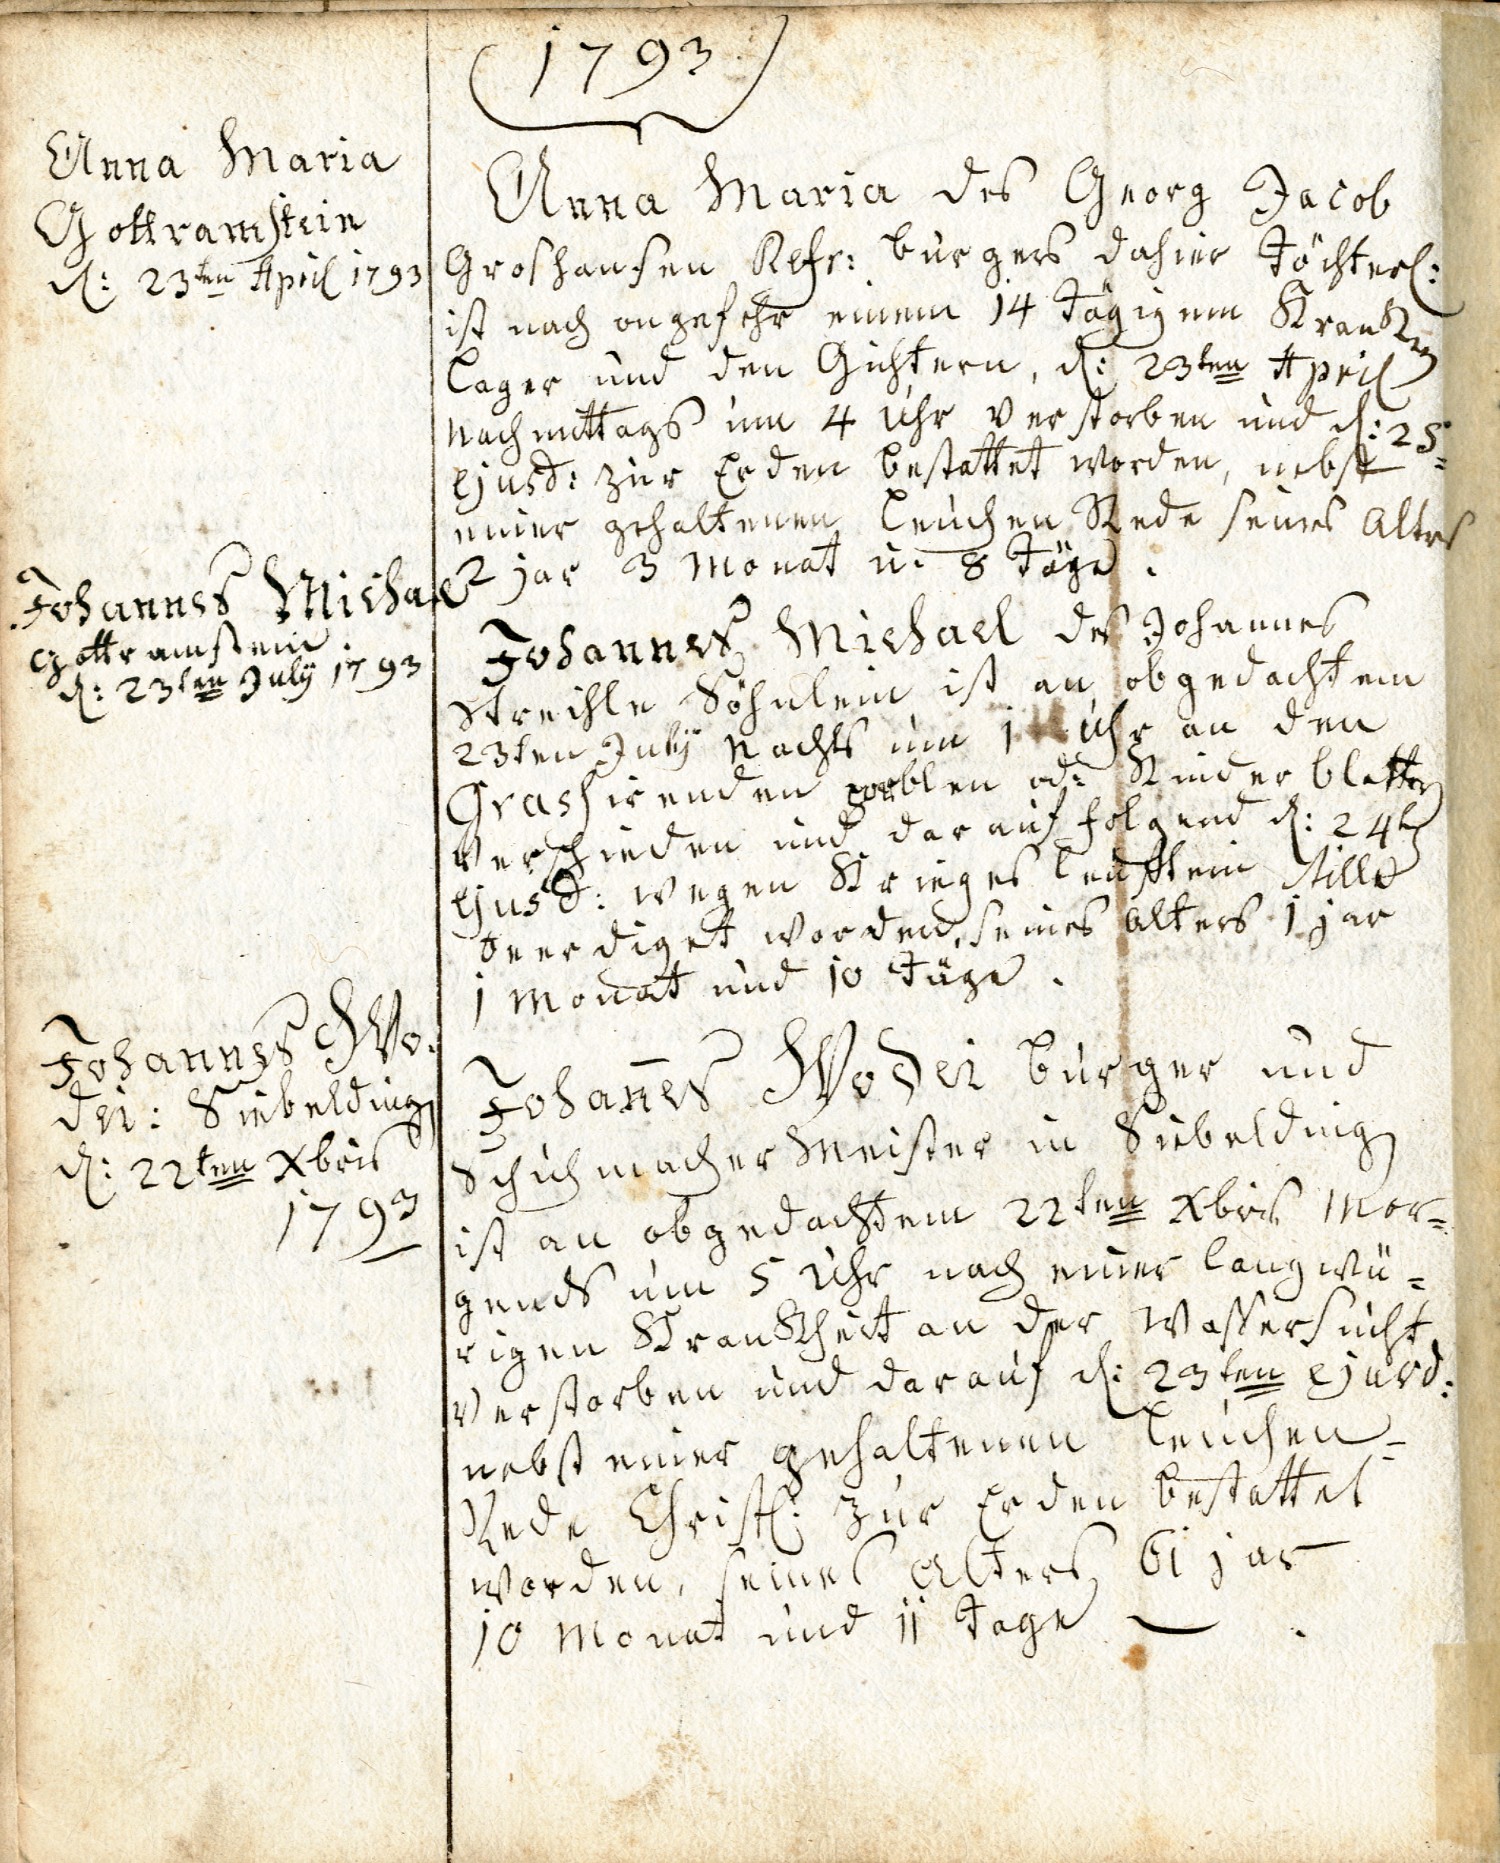 1793
Anna Maria
Gottramstein
d: 23ten April 1793
Anna Maria des Georg Jacob
Groshansen Refr: burgers dahier Töchterl:
ist nach ongefehr einem 14 tägigem Krancken
lager und den Gichtern, d: 23ten April
nachmittags um 4 Uhr verstorben und d: 25=
ejusd: zur Erden bestattet worden, nebst
einer gehaltenen leichen Rede seines Alters
2 jar 3 Monat u. 8 Täge.
Johannes Michael
Gottramstein
d: 23ten July 1793
Johannes Michael des Johannes
Streihle Söhnlein ist an obgedachtem
23ten July Nachts um 1 Uhr an den
Grassirenden porblen od: Kinder blattern
verschieden und darauf folgend d: 24t
ejusd: wegen Krieges leufftein stille
beerdiget worden, seines Alters 1 jar
1 Monat und 10 Täge.
Johannes Wo:
dei: Siebelding
d: 22ten Xbris
1793
Johanes Wodei burger und
Schuhmacher Meister in Siebelding
ist an obgedachtem 22ten Xbris Mor=
gends um 5 Uhr nach einer langwü=
rigen Kranckheit an der Wassersucht
verstorben und darauf d: 23ten ejusd:
nebst einer gehaltenen leichen=
Rede Christl: zur Erden bestattet
worden, seines Alters 61 jar
10 Monat und 11 Tage.